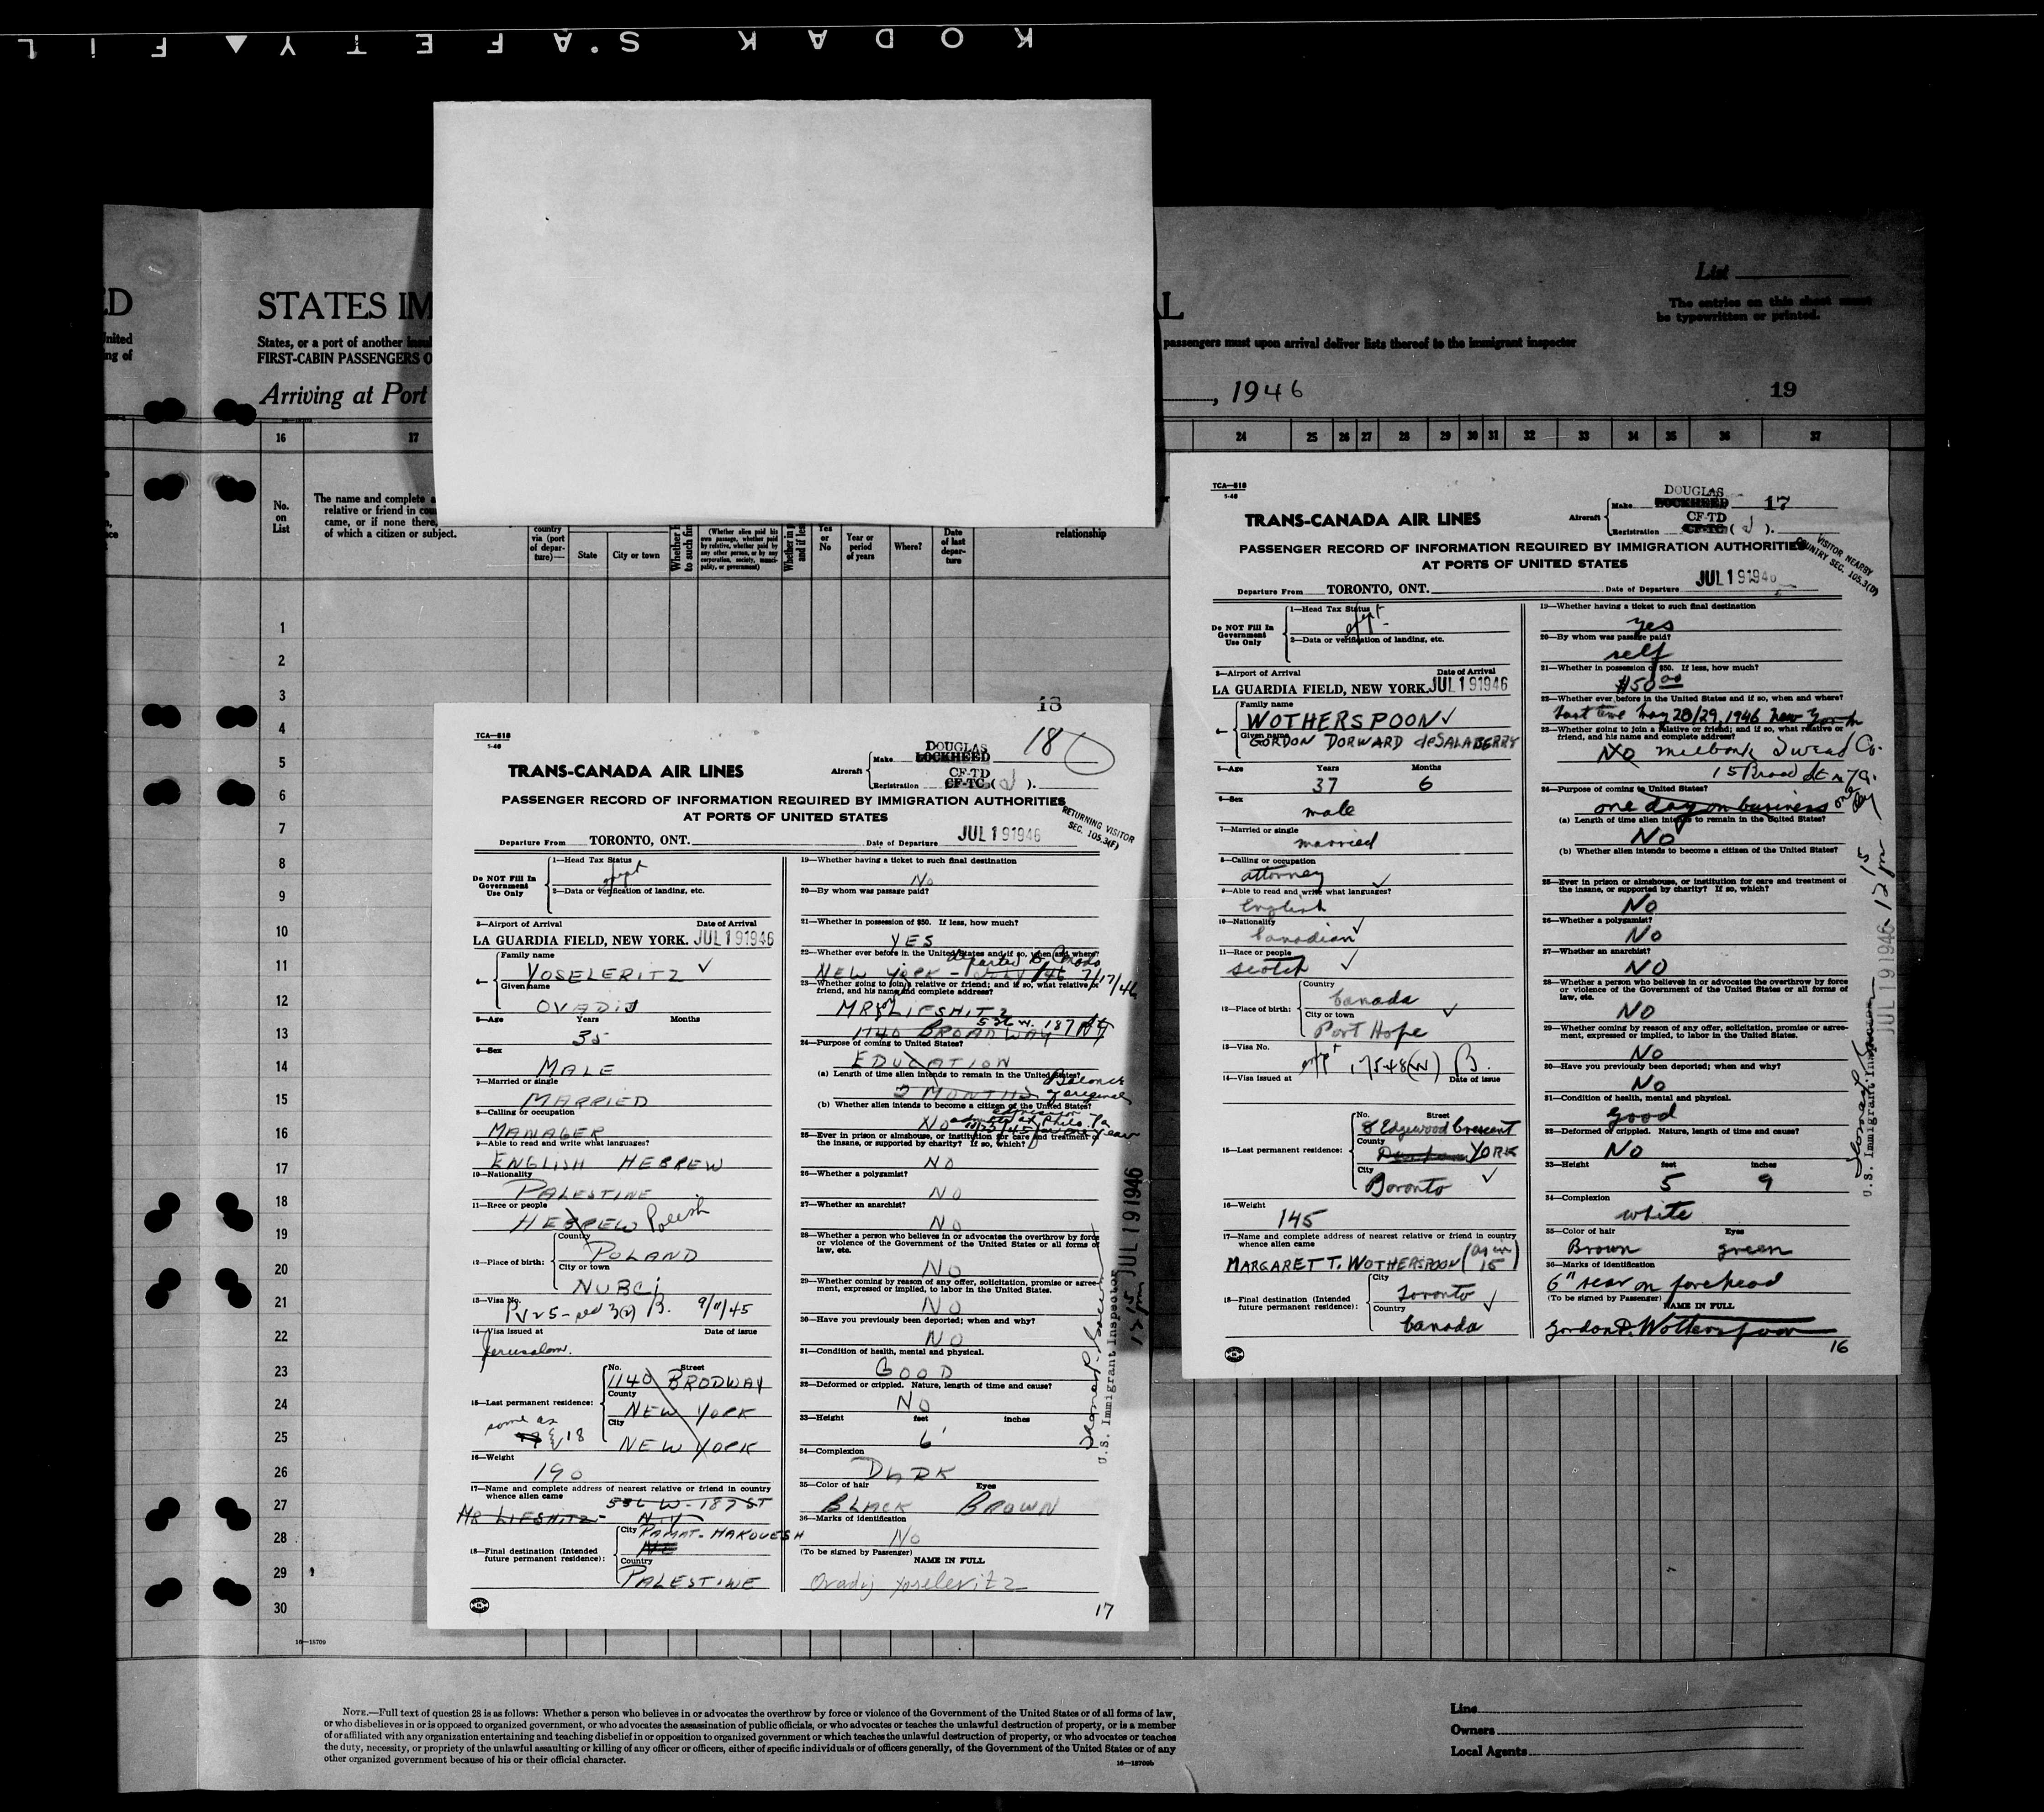 KODAK S'AFETY▲FIL
ED
STATES IM
L
List
The entries on this sheet must
be typewritten or printed.
nited
ng of
States, or a port of another insul
FIRST-CABIN PASSENGERS O
passengers must upon arrival deliver lists thereof to the immigrant inspector
Arriving at Port
, 1946
19
16 17 24 25 26 27 28 29 30 31 32 33 34 35 36 37
No.
on
List
The name and complete a
relative or friend in cou
came, or if none there,
of which a citizen or subject.
country
via (port
of depar-
ture)—
State
City or town
(Whether alien paid his
own passage, whether paid
by relative, whether paid by
any other person, or by any
corporation, society, munici-
pality, or government)
Yes
or
No
Year or
period
of years
Where?
Date
of last
depar-
ture
relationship
1
2
3
4
5
6
7
8
9
10
11
12
13
14
15
16
17
18
19
20
21
22
23
24
25
26
27
28
29
30
16—18709
18
TCA—618
5-46
18
TRANS-CANADA AIR LINES
Aircraft
Make DOUGLAS LOCKHEED
Registration CF-TD CF-TC ( d ).
PASSENGER RECORD OF INFORMATION REQUIRED BY IMMIGRATION AUTHORITIES
AT PORTS OF UNITED STATES
RETURNING VISITOR
SEC. 105.3(F)
Departure From TORONTO, ONT. Date of Departure JUL 19 1946
Do NOT Fill In
Government
Use Only
1—Head Tax Status
2—Data or verification of landing, etc.
3—Airport of Arrival Date of Arrival
LA GUARDIA FIELD, NEW YORK. JUL 19 1946
4— Family name
YOSELERITZ ✓
Given name
OVADIJ
5—Age Years Months
35
6—Sex
MALE
7—Married or single
MARRIED
8—Calling or occupation
MANAGER
9—Able to read and write what languages?
ENGLISH HEBREW
10—Nationality
PALESTINE
11—Race or people
HEBREW Polish
12—Place of birth:
Country
POLAND
City or town
NUBCI
13—Visa No.
PV 25 - 3(2) B. 9/11/45
14—Visa issued at Date of issue
Jerusalem.
15—Last permanent residence:
No. Street
1140 BRODWAY
County
NEW YORK
City
NEW YORK
same as
18
16—Weight
190
17—Name and complete address of nearest relative or friend in country
whence alien came
536 W. 187 ST
MR LIFSHITZ N.Y
18—Final destination (Intended
future permanent residence):
City RAMAT-HAKOVESH
Country
PALESTINE
19—Whether having a ticket to such final destination
No
20—By whom was passage paid?
21—Whether in possession of $50. If less, how much?
YES
22—Whether ever before in the United States and if so, when and where?
departed to Canada
NEW YORK - JULY 1946 7/17/46
23—Whether going to join a relative or friend; and if so, what relative or
friend, and his name and complete address?
MR LIFSHITZ
536 W. 187 St
1740 BROADWAY NY
24—Purpose of coming to United States?
EDUCATION
(a) Length of time alien intends to remain in the United States?
2 MONTHS Balance
of original
(b) Whether alien intends to become a citizen of the United States?
admission
NO admitted at Phila. Pa
for one year
25—Ever in prison or almshouse, or institution for care and treatment of
the insane, or supported by charity? If so, which?
NO
26—Whether a polygamist?
NO
27—Whether an anarchist?
NO
28—Whether a person who believes in or advocates the overthrow by force
or violence of the Government of the United States or all forms of
law, etc.
NO
29—Whether coming by reason of any offer, solicitation, promise or agree-
ment, expressed or implied, to labor in the United States.
NO
30—Have you previously been deported; when and why?
NO
31—Condition of health, mental and physical.
GOOD
32—Deformed or crippled. Nature, length of time and cause?
NO
33—Height feet inches
6'
34—Complexion
DARK
35—Color of hair Eyes
BLACK BROWN
36—Marks of identification
NO
(To be signed by Passenger)
NAME IN FULL
Ovadij Yoselevitz
17
U.S. Immigrant Inspector
JUL 19 1946
12 15 pm
TCA—618
5-46
TRANS-CANADA AIR LINES
Aircraft
Make DOUGLAS LOCKHEED 17
Registration CF-TD CF-TC ( d ).
PASSENGER RECORD OF INFORMATION REQUIRED BY IMMIGRATION AUTHORITIES
AT PORTS OF UNITED STATES
VISITOR NEARBY
COUNTRY SEC. 105.3(D)
Departure From TORONTO, ONT. Date of Departure JUL 19 1946
Do NOT Fill In
Government
Use Only
1—Head Tax Status
2—Data or verification of landing, etc.
3—Airport of Arrival Date of Arrival
LA GUARDIA FIELD, NEW YORK. JUL 19 1946
4— Family name
WOTHERSPOON ✓
Given name
GORDON DORWARD deSALABERRY
5—Age Years Months
37 6
6—Sex
male
7—Married or single
married
8—Calling or occupation
attorney
9—Able to read and write what languages? ✓
English
10—Nationality
Canadian ✓
11—Race or people
Scotch ✓
12—Place of birth:
Country
Canada
City or town ✓
Port Hope
13—Visa No.
17548(W) B.
14—Visa issued at Date of issue
15—Last permanent residence:
No. Street
8 Edgewood Crescent
County
Durham YORK
City
Toronto ✓
16—Weight
145
17—Name and complete address of nearest relative or friend in country
whence alien came
MARGARET T. WOTHERSPOON (as in 15)
18—Final destination (Intended
future permanent residence):
City
Toronto
Country ✓
Canada
19—Whether having a ticket to such final destination
yes
20—By whom was passage paid?
self
21—Whether in possession of $50. If less, how much?
$50.00
22—Whether ever before in the United States and if so, when and where?
last time May 28/29, 1946 New York
23—Whether going to join a relative or friend; and if so, what relative or
friend, and his name and complete address?
NO Milbank Tweed Co.
15 Broad St N.Y.C.
24—Purpose of coming to United States?
one day on business one day
(a) Length of time alien intends to remain in the United States?
NO
(b) Whether alien intends to become a citizen of the United States?
25—Ever in prison or almshouse, or institution for care and treatment of
the insane, or supported by charity? If so, which?
NO
26—Whether a polygamist?
NO
27—Whether an anarchist?
NO
28—Whether a person who believes in or advocates the overthrow by force
or violence of the Government of the United States or all forms of
law, etc.
NO
29—Whether coming by reason of any offer, solicitation, promise or agree-
ment, expressed or implied, to labor in the United States.
NO
30—Have you previously been deported; when and why?
NO
31—Condition of health, mental and physical.
good
32—Deformed or crippled. Nature, length of time and cause?
NO
33—Height feet inches
5 9
34—Complexion
white
35—Color of hair Eyes
Brown green
36—Marks of identification
6" scar on forehead
(To be signed by Passenger)
NAME IN FULL
Gordon D. Wotherspoon
16
U.S. Immigrant Inspector
JUL 19 1946 - 12 15 pm
NOTE.—Full text of question 28 is as follows: Whether a person who believes in or advocates the overthrow by force or violence of the Government of the United States or of all forms of law,
or who disbelieves in or is opposed to organized government, or who advocates the assassination of public officials, or who advocates or teaches the unlawful destruction of property, or is a member
of or affiliated with any organization entertaining and teaching disbelief in or opposition to organized government or which teaches the unlawful destruction of property, or who advocates or teaches
the duty, necessity, or propriety of the unlawful assaulting or killing of any officer or officers, either of specific individuals or of officers generally, of the Government of the United States or of any
other organized government because of his or their official character.
16—18709b
Line
Owners
Local Agents